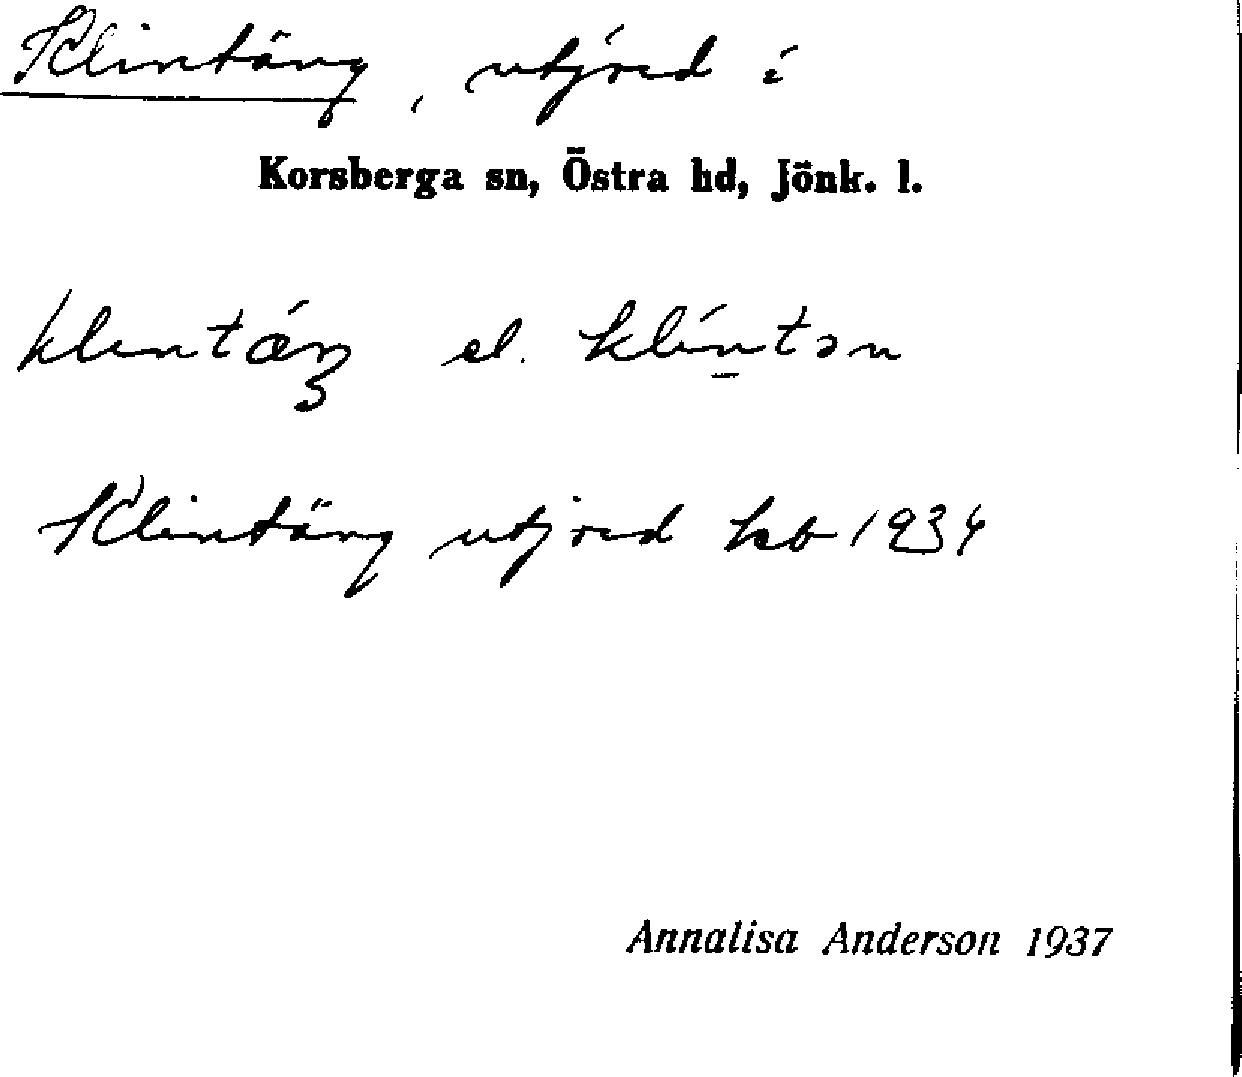 Klintäng, utjord i
Korsberga sn, Östra hd, Jönk. l.
klentǽŋ el. klíntən
Klintäng utjord kb 1934
Annalisa Anderson 1937